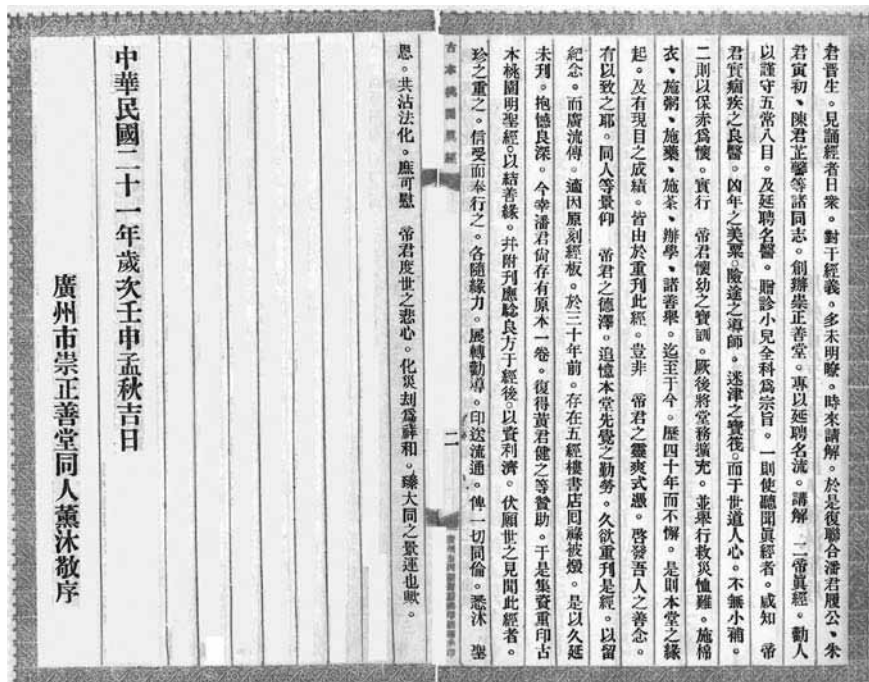 君晋生。見誦經者日衆。對于經義。多未明瞭。時來請解。於是復聯合潘君履公、朱
君寅初、陳君芷馨等諸同志。創辦崇正善堂。專以延聘名流。講解　二帝眞經。勸人
以謹守五常八目。及延聘名醫。贈診小兒全科爲宗旨。一則使聽聞眞經者。咸知　帝
君實痼疾之良醫。凶年之美粟。險途之導師。迷津之寶筏。而于世道人心。不無小補。
二則以保赤爲懷。實行　帝君懷幼之寶訓。厥後將堂務擴充。並舉行救災恤難。施棉
衣、施粥、施藥、施茶、辦學、諸善舉。迄至于今。歷四十年而不懈。是則本堂之緣
起。及有現目之成績。皆由於重刊此經。豈非　帝君之靈爽式憑。啓發吾人之善念。
有以致之耶。同人等景仰　帝君之德澤。追憶本堂先覺之勤勞。久欲重刊是經。以留
紀念。而廣流傳。適因原刻經板。於三十年前。存在五經樓書店回祿被燬。是以久延
未刊。抱憾良深。今幸潘君尙存有原本一卷。復得黃君健之等贊助。于是集資重印古
本桃園明聖經。以結善緣。幷附刊應驗良方于經後。以資利濟。伏願世之見聞此經者。
珍之重之。信受而奉行之。各隨緣力。展轉勸導。印送流通。俾一切同倫。悉沐　聖
古本桃園明聖經
二
恩。共沾法化。庶可慰　帝君度世之悲心。化災刦爲祥和。臻大同之景運也歟。
中華民國二十一年歲次壬申孟秋吉日
廣州市崇正善堂同人薰沐敬序